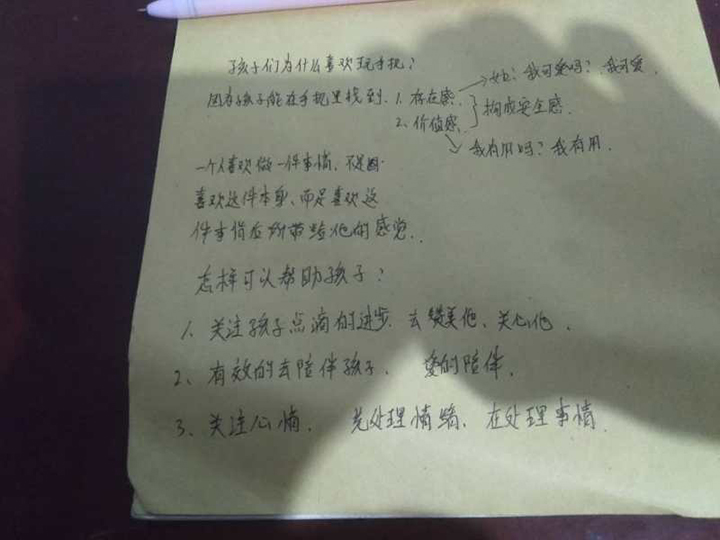 孩子们为什么喜欢玩手机？
因为孩子能在手机里找到. 1. 存在感. → 如：我可爱吗？我可爱.
2. 价值感 } 构成安全感.
→ 我有用吗？我有用.
一个人喜欢做一件事情, 不是因
喜欢这件本身、而是喜欢这
件事情后所带给他的感觉.
怎样可以帮助孩子？
1、关注孩子点滴的进步. 去赞美他、关心他.
2、有效的去陪伴孩子. 爱的陪伴.
3、关注心情. 先处理情绪、在处理事情.